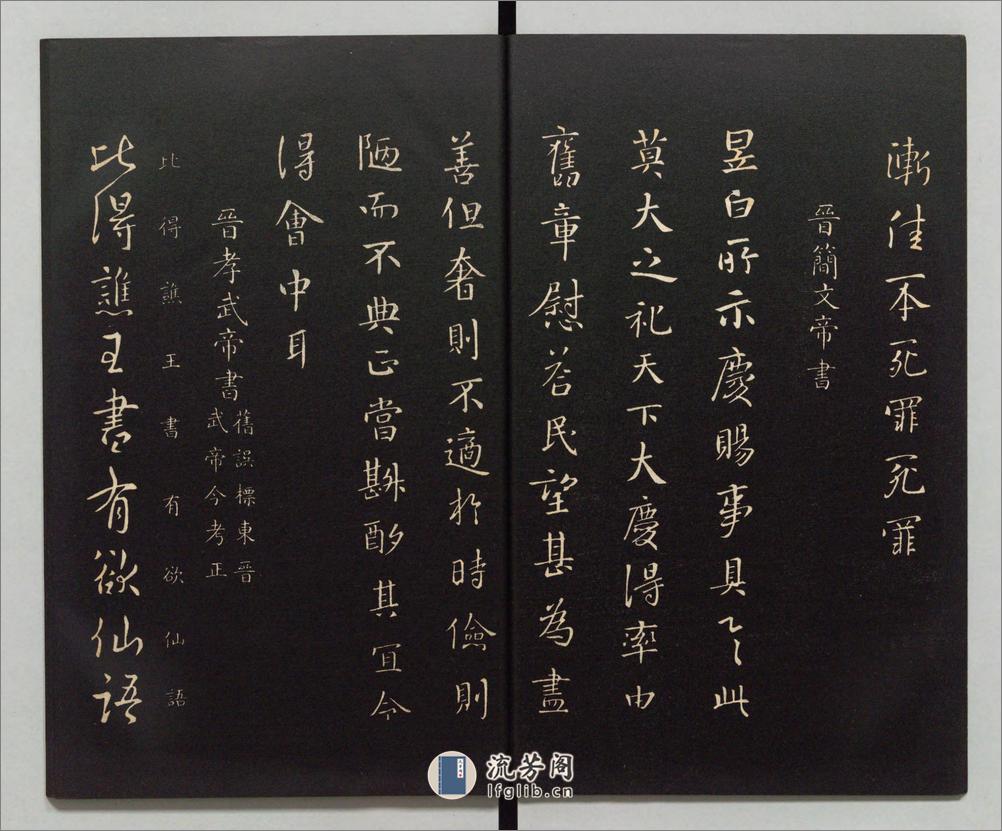 漸佳一本死罪死罪
晉簡文帝書
昱白所示慶賜事具之此
莫大之祀天下大慶得率由
舊章慰答民望甚為盡
善但奢則不適於時儉則
陋而不典正當斟酌其宜令
得會中耳
晉孝武帝書
舊誤標東晉
武帝今考正
比得譙王書有欲仙語
比得譙王書有欲仙語
流芳阁
lfglib.cn